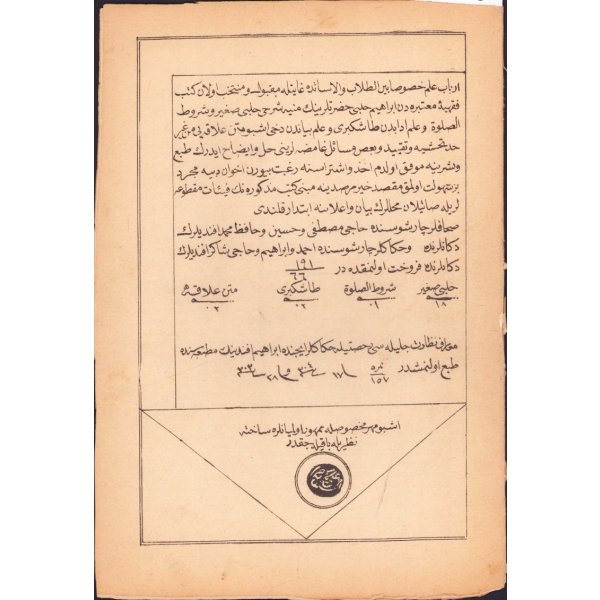 ارباب علم خصوصا بين الطلاب والاساتذه غايتله مقبول و منتخب اولان كتب
فقهيهٔ معتبره دن ابراهيم حلبى حضرتلرينك منيه شرحى حلبى صغير و شروط
الصلوة و علم ادابدن طاشكبرى و علم بياندن دخى اشبو متن علاقه يى من غير
حد تحشيه و تقييد و بعض مسائل غامضه لرينى حل و ايضاح ايدرك طبع
و نشرينه موفق اولدم اخذ و اشتراسنه رغبت بيوران اخوان دينيه مجرد
بر سهولت اولمق مقصد خير مرصدينه مبنى كتب مذكوره نك فيئات مقطوعه
لريله صاتيلان محللرك بيان و اعلاننه ابتدار قلندى
صحافلر چارشوسنده حاجى مصطفى و حسين و حافظ محمد افنديلرك
دكانلرنده و حكاكلر چارشوسنده احمد و ابراهيم و حاجى شاكر افنديلرك
دكانلرنده فروخت اولنمقده در ١٩١
٦٦
حلبى صغير شروط الصلوة طاشكبرى متن علاقه
١٨ ٠١ ٠٢ ٠٢
معارف نظارت جليله سى رخصتيله حكاكلر ايچنده ابراهيم افندينك مطبعه سنده
طبع اولنمشدر نمره ١٥٧
اشبو مهر مخصوصله ممهور اوليانلره ساخته
نظريله باقيله جقدر